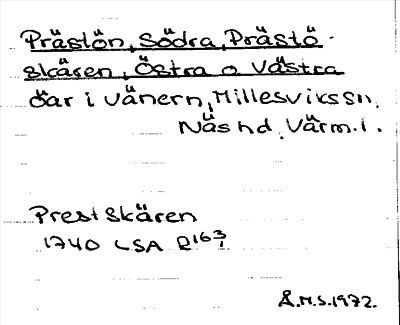 Prästön, Södra, Prästö-
skären, Östra o Västra
öar i Vänern, Millesvikssn,
Näs hd, Värm.l.
Prestskären
1740 LSA R163/1
Å.M.S. 1972.